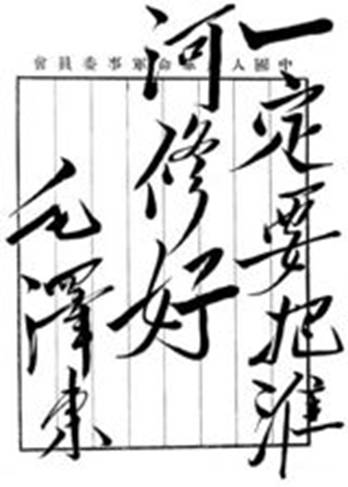 一定要把淮
河修好
毛澤东
中國人 革命軍事委員會